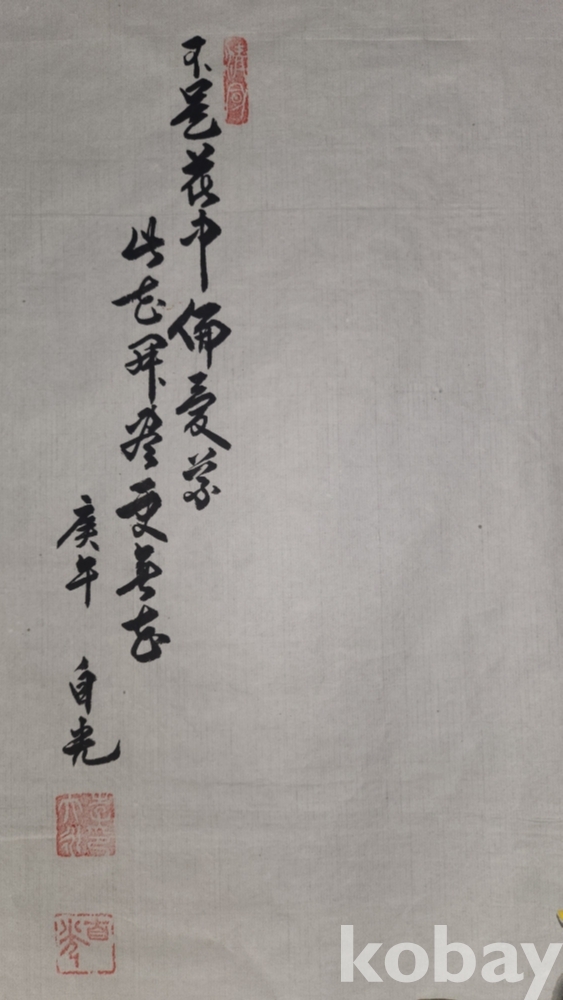 不是花中偏愛菊
此花開盡更無花
庚午 自光
kobay